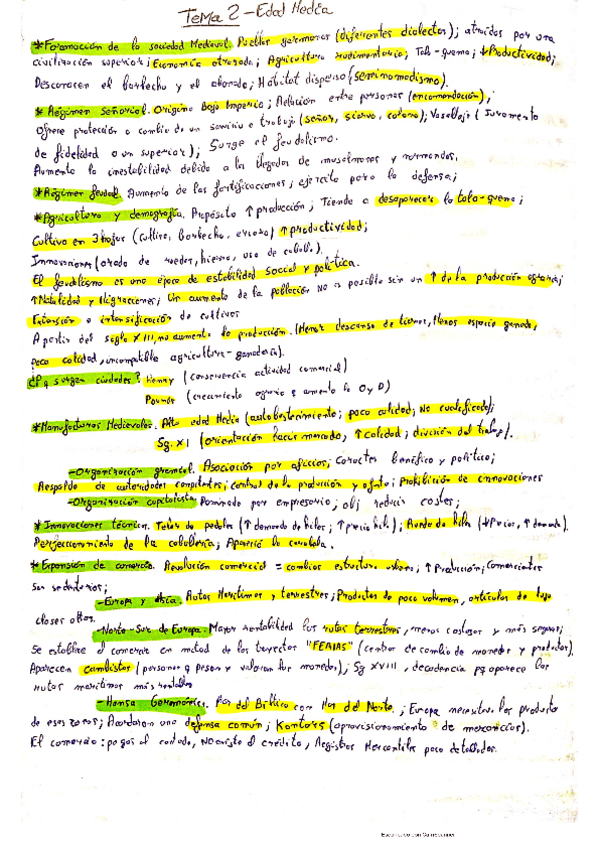 Tema 2 - Edad Media
*Formación de la sociedad Medieval. Pueblos germanos (diferentes dialectos); atraídos por una
civilización superior; Economía atrasada; Agricultura rudimentaria; Tala-quema; ↓Productividad;
Desconocen el barbecho y el abonado; Hábitat disperso (seminomadismo).
*Régimen Señorial. Origina Bajo Imperio; Relación entre personas (encomendación);
Ofrece protección a cambio de un servicio o trabajo (señor, siervo, colono); Vasallaje (Juramento
de fidelidad a un superior); Surge el feudalismo.
Aumenta la inestabilidad debido a las llegadas de musulmanes y normandos.
*Régimen feudal. Aumento de las fortificaciones; ejército para la defensa;
*Agricultura y demografía. Propósito ↑producción; Tiende a desaparecer la tala-quema;
Cultivo en 3 hojas (cultivo, barbecho, erial) ↑productividad;
Innovaciones (arado de ruedas, hierro, uso de caballo).
El feudalismo es una época de estabilidad social y política.
↑Natalidad y Migraciones; Un aumento de la población no es posible sin un ↑ de la producción agraria;
Extensión o intensificación de cultivos
A partir del siglo XIII, no aumenta la producción. (Menor descanso de tierras, Menos espacio ganado,
poca calidad, incompatible agricultura-ganadería).
¿P q surgen ciudades? Henry (consecuencia actividad comercial)
Pounds (crecimiento agrario q aumenta la O y D)
*Manufacturas Medievales. Alta edad Media (autoabastecimiento; poca calidad; No cualificada);
Sg. XI (orientación hacia mercado, ↑Calidad; división del trabajo).
-Organización gremial. Asociación por oficios; Carácter benéfico y político;
Respaldo de autoridades competentes; control de la producción y oferta; Prohibición de innovaciones
-Organización capitalista. Dominado por empresario; obj reducir costes;
*Innovaciones técnicas. Telar de pedales (↑demanda de hilos; ↑precio hilo); Rueda de hilar (↓Precios, ↑demanda).
Perfeccionamiento de la caballería; Apareció la carabela.
*Expansión de comercio. Revolución comercial = cambios estructura urbana; ↑Producción; Comerciantes
Son sedentarios;
-Europa y Asia. Rutas Marítimas y terrestres; Productos de poco volumen, artículos de lujo
clases altas.
-Norte-Sur de Europa. Mayor rentabilidad las rutas terrestres, menos costosas y más seguras;
Se establece el comercio en mitad de los trayectos "FERIAS" (centros de cambio de monedas y productos)
Aparecen cambistas (personas q pesan y valoran las monedas); Sg XVIII, decadencia pq aparece las
rutas marítimas más rentables
-Hansa Germánica. Mar del Báltico con Mar del Norte.; Europa necesitaba los productos
de esas zonas; Acordaron una defensa común; Kontores (aprovisionamiento de mercancías).
El comercio: pagos al contado, No existe el crédito, Registros Mercantiles poco detallados.